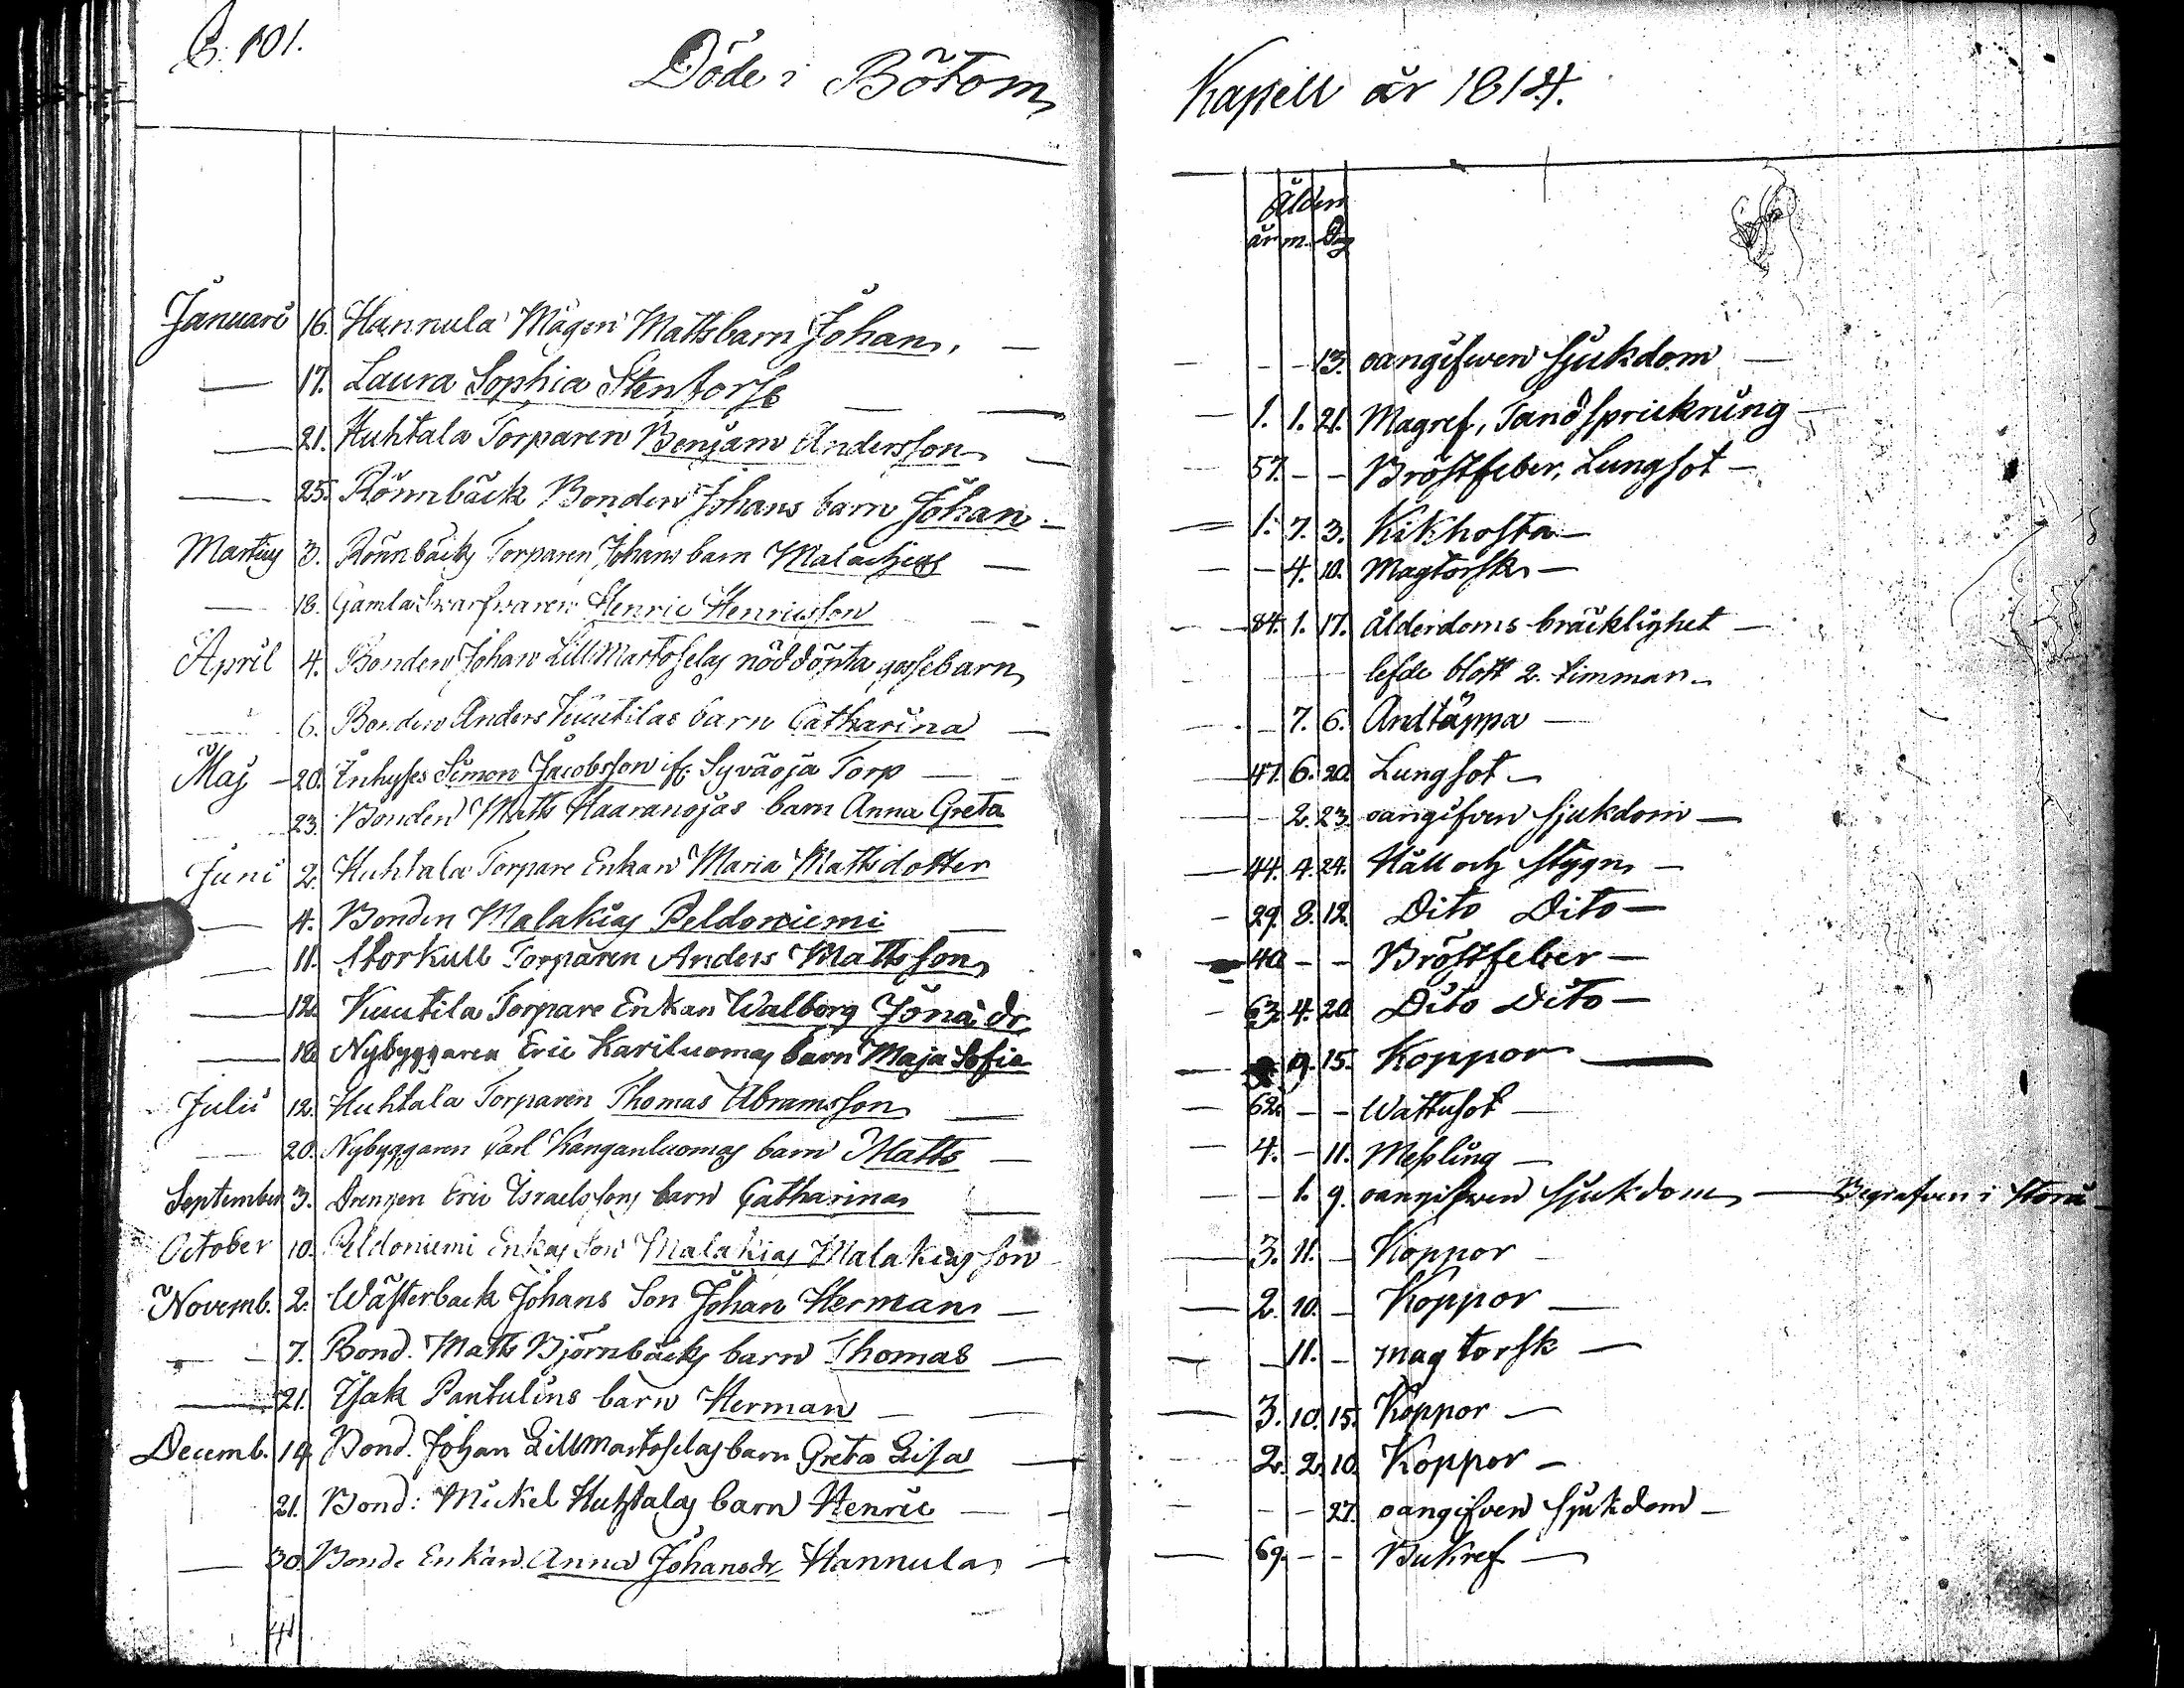 101.
Döde i Bötom Kapell år 1814.
Ålder
år m. Dag
Januari 16. Hannula Mågen Matts barn Johan. — 13. oangifwen sjukdom —
— 17. Laura Sophia Stenfors — 1. 1. 21. Magref, Tandsprickning —
— 21. Huhtala Torparen Benjam Andersson — 57. - - Bröstfeber, Lungsot —
— 25. Rönnbäck Bonden Johans barn Johan — 1. 7. 3. Kikhosta —
Martius 3. Rönnbäcks Torparen Johans barn Malachias — - 4. 10. Magtorsk —
— 18. Gamla Swarfwaren Henric Henricsson — 84. 1. 17. ålderdoms bräcklighet —
April 4. Bonden Johan Lillmartoselas nöddöpta gossebarn lefde blott 2. timmar
6. Bonden Anders Kuutilas barn Catharina — - 7. 6. Andtäppa —
Maj — 20. Inhyses Simon Jacobsson if. Syväoja Torp — 47. 6. 20. Lungsot —
23. Bonden Matts Haaranojas barn Anna Greta - 2. 23. oangifven sjukdom —
Juni 2. Huhtala Torpare Enkan Maria Mattsdotter — 44. 4. 24. Håll och Stygn —
— 4. Bonden Malakias Peldoniemi — 29. 8. 12. Dito Dito —
— 11. Storkull Torparen Anders Mattsson — 40 - - Bröstfeber —
— 12. Kuutila Torpare Enkan Walborg Jonä dr — 63. 4. 20 Dito Dito —
— 18. Nybyggaren Eric Kariluomas barn Maja Sofia — 9. 15. Koppor —
Julii 12. Huhtala Torparen Thomas Abramsson — 62. - - Wattusot —
— 20. Nybyggaren Carl Kanganluomas barn Matts — 4. - 11. Messling —
September 3. Drengen Eric Israelssons barn Catharina — - 1. 9. oangifwen sjukdom — Begrafven i Storå
October 10. Peldoniemi Enkas Son Malakias Malakiasson — 3. 11. - Koppor
Novemb. 2. Wästerback Johans Son Johan Herman — 2. 10. - Koppor —
— 7. Bond. Matts Björnbäcks barn Thomas — - 11. - mag torsk —
— 21. Isak Pantulins barn Herman — 3. 10. 15. Koppor —
Decemb. 14 Bond. Johan Lillmartoselas barn Greta Lisa — 2. 2. 10. Koppor —
21. Bond: Mickel Huhtalas barn Henric — - - 27. oangifven sjukdom —
— 30. Bonde Enkan Anna Johansdr Hannula — 69. - - Bukref —